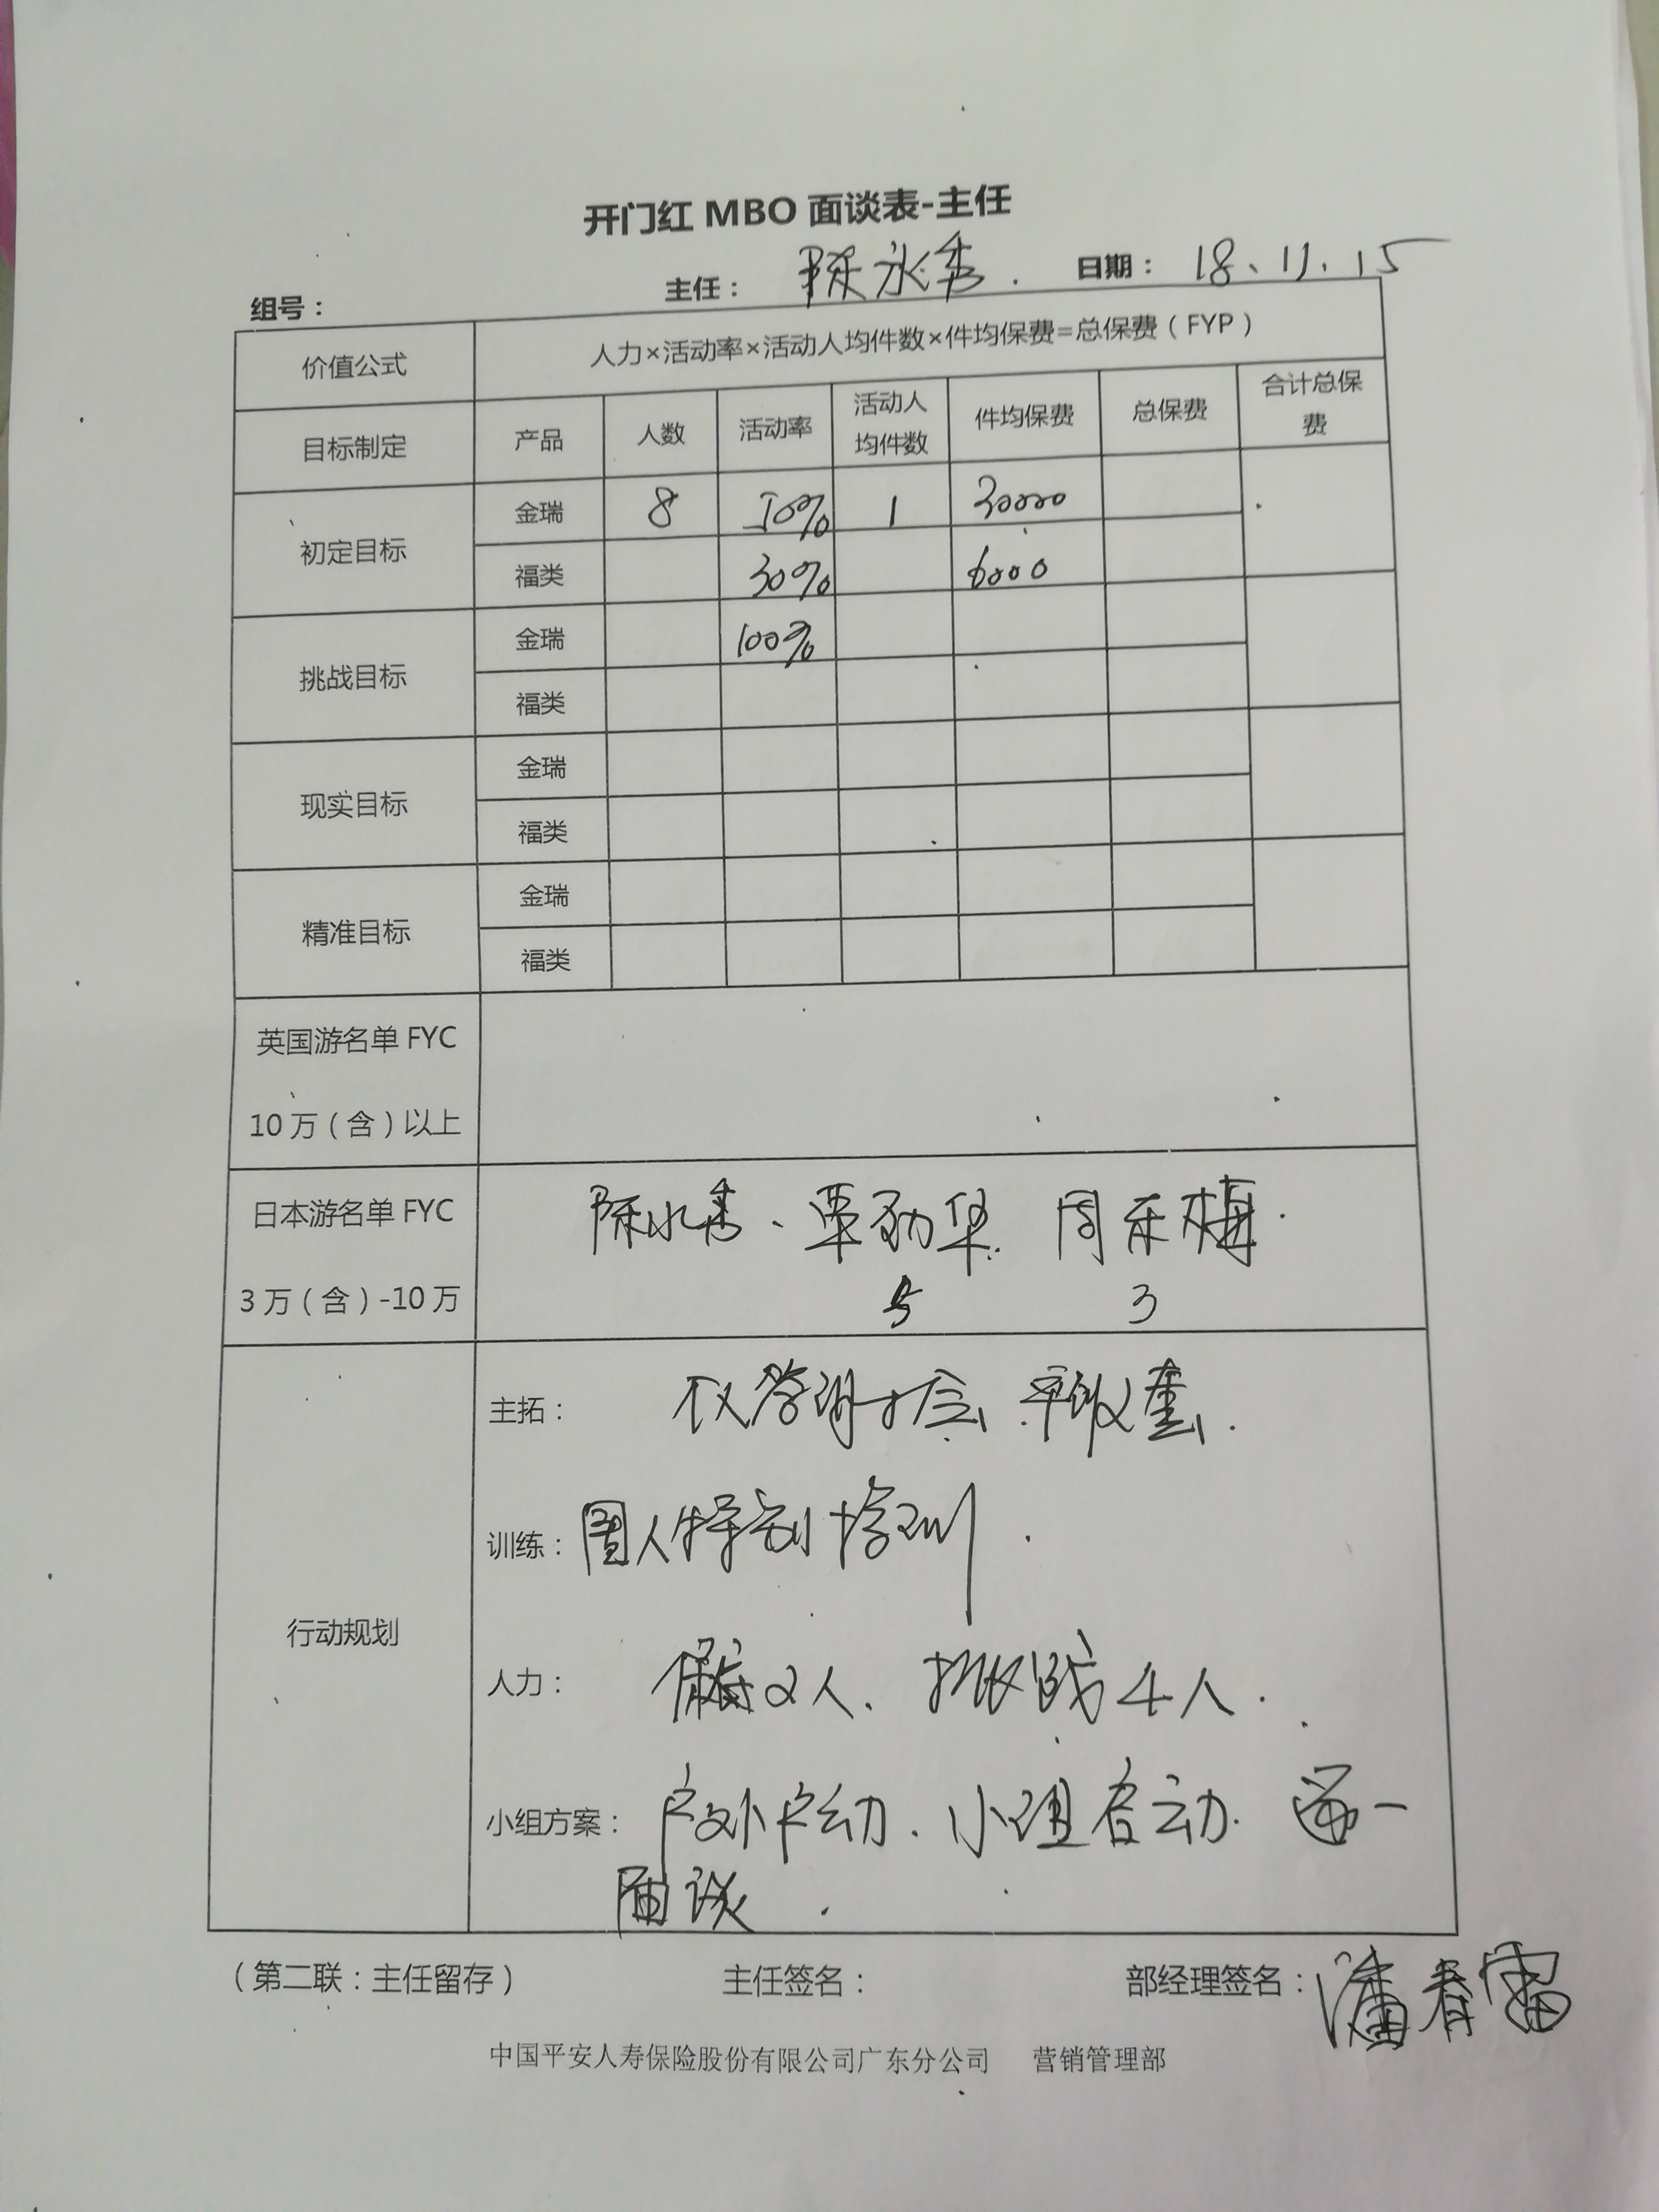 开门红 MBO 面谈表-主任
组号： 主任： 陈永秀. 日期： 18、11、15
价值公式 人力×活动率×活动人均件数×件均保费=总保费（FYP）
目标制定 产品 人数 活动率 活动人均件数 件均保费 总保费 合计总保费
初定目标 金瑞 8 50% 1 30000
福类 30% 6000
挑战目标 金瑞 100%
福类
现实目标 金瑞
福类
精准目标 金瑞
福类
英国游名单 FYC
10 万（含）以上
日本游名单 FYC 陈永秀、覃劲华 周 梅.
3 万（含）-10 万 5 3
行动规划
主拓：
训练： 人特别培训.
人力： 2人、挑战4人.
小组方案： 户外 动. 小组启动. 逐一
面谈.
（第二联：主任留存） 主任签名： 部经理签名： 潘春雷
中国平安人寿保险股份有限公司广东分公司 营销管理部